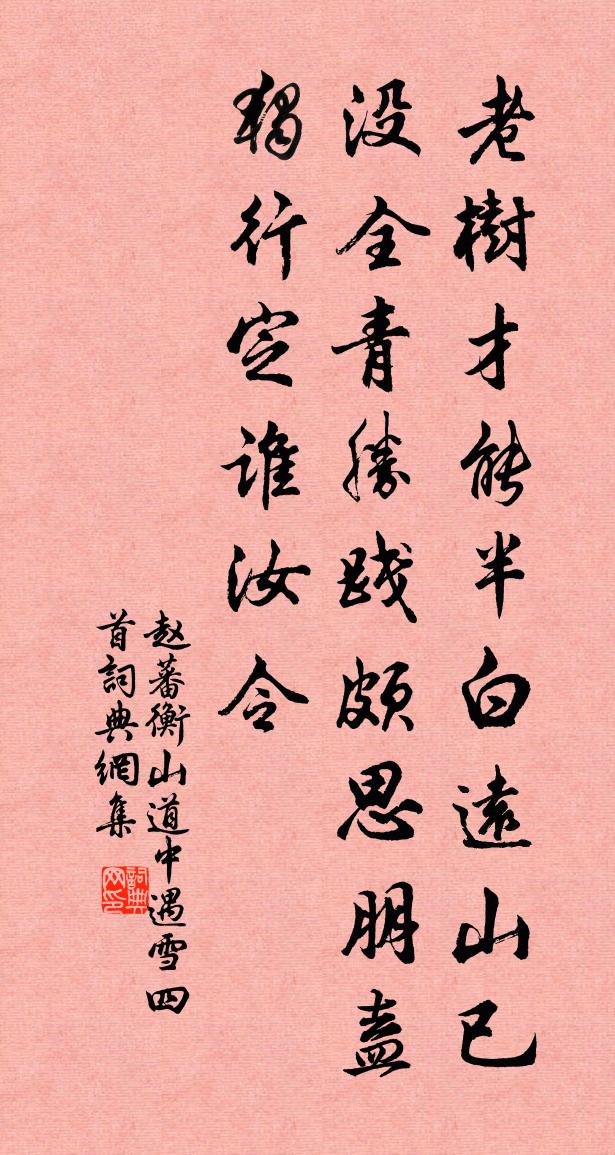 老樹才能半白遠山已
没全青勝踐頗思朋盍
獨行定誰汝令
赵蕃衡山道中遇雪四
首詞典網集
詞典
网印